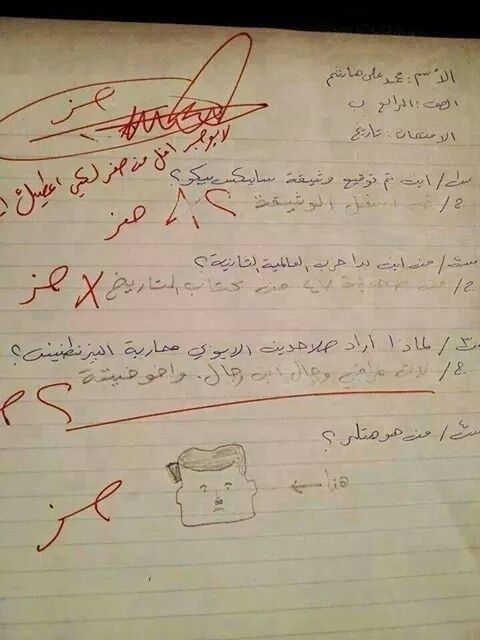 الأسم: محمد علي هاشم
الصف: الرابع ب
الامتحان: تاريخ
صفر
لا يوجد اقل من صفر لكي اعطيك
س١/ اين تم توقيع وثيقة سايكس بيكو؟
ج/ في اسفل الوثيقة
صفر
س٢/ من اين بدا حرب العالمية الثانية؟
ج/ من صفحة ٧٤ من كتاب التاريخ
صفر
س٣/ لماذا اراد صلاحدين الايوبي محاربة البيزنطينين؟
ج/ لانه عراقي وجال ابن رجال. واخو خيتة
س٤/ من هو هتلر؟
هذا
صفر